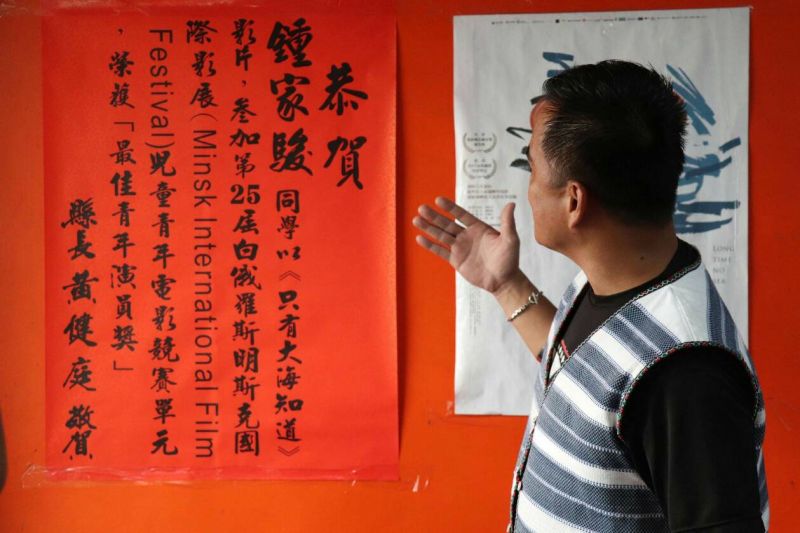 恭賀
鍾家駿同學以《只有大海知道》
影片，參加第25屆白俄羅斯明斯克國
際影展(Minsk International Film
Festival)兒童青年電影競賽單元
，榮獲「最佳青年演員獎」
縣長黃健庭敬賀
LONG
TIME
NO
SEA